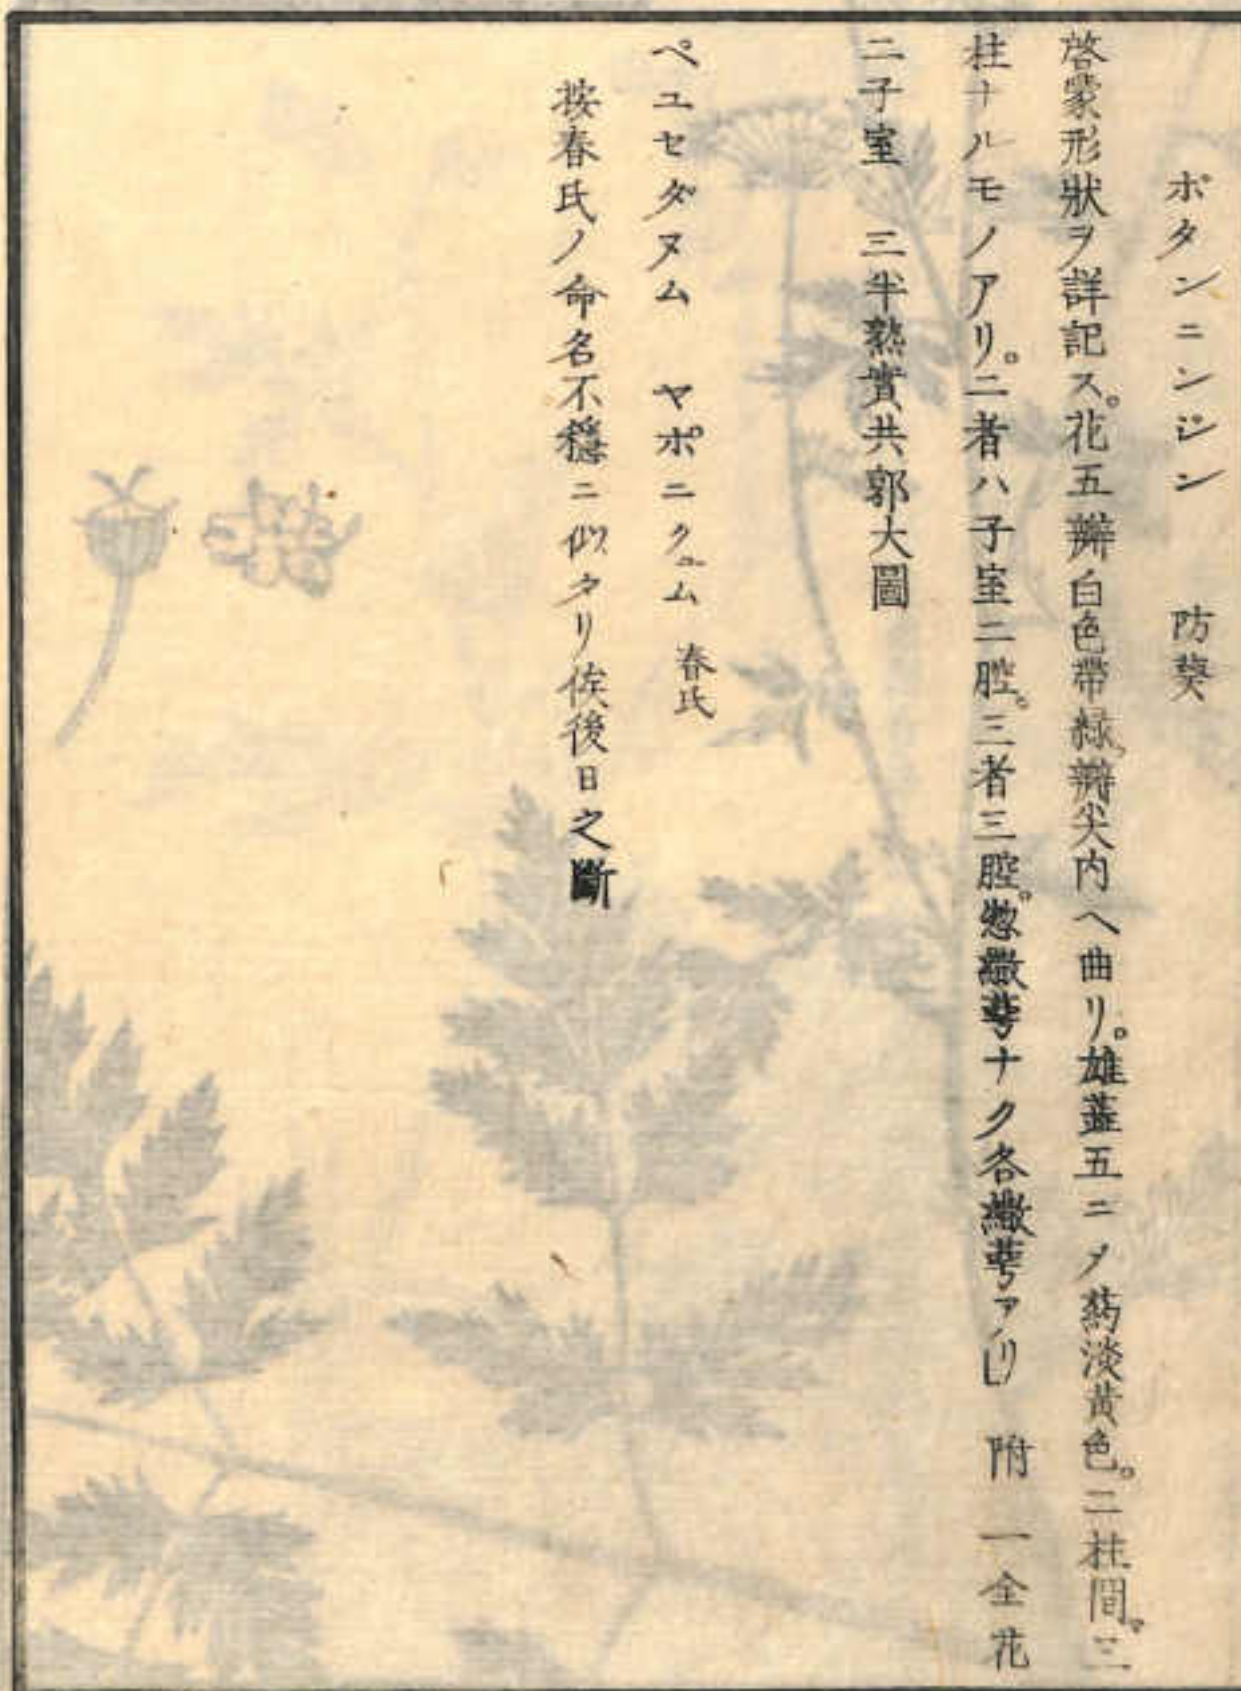 ボタンニンジン　防葵
啓蒙形狀ヲ詳記ス。花五瓣白色帶緑、瓣尖內ヘ曲リ。雄蕋五ニメ葯淡黃色。二柱間。三
柱ナルモノアリ。二者ハ子室二腔。三者三腔。惣繖萼ナク各繖萼アリ　附　一全花
二子室　三半熟實共郭大圖
ペユセダヌム　ヤポニクュム　春氏
按春氏ノ命名不穩ニ似タリ俟後日之斷